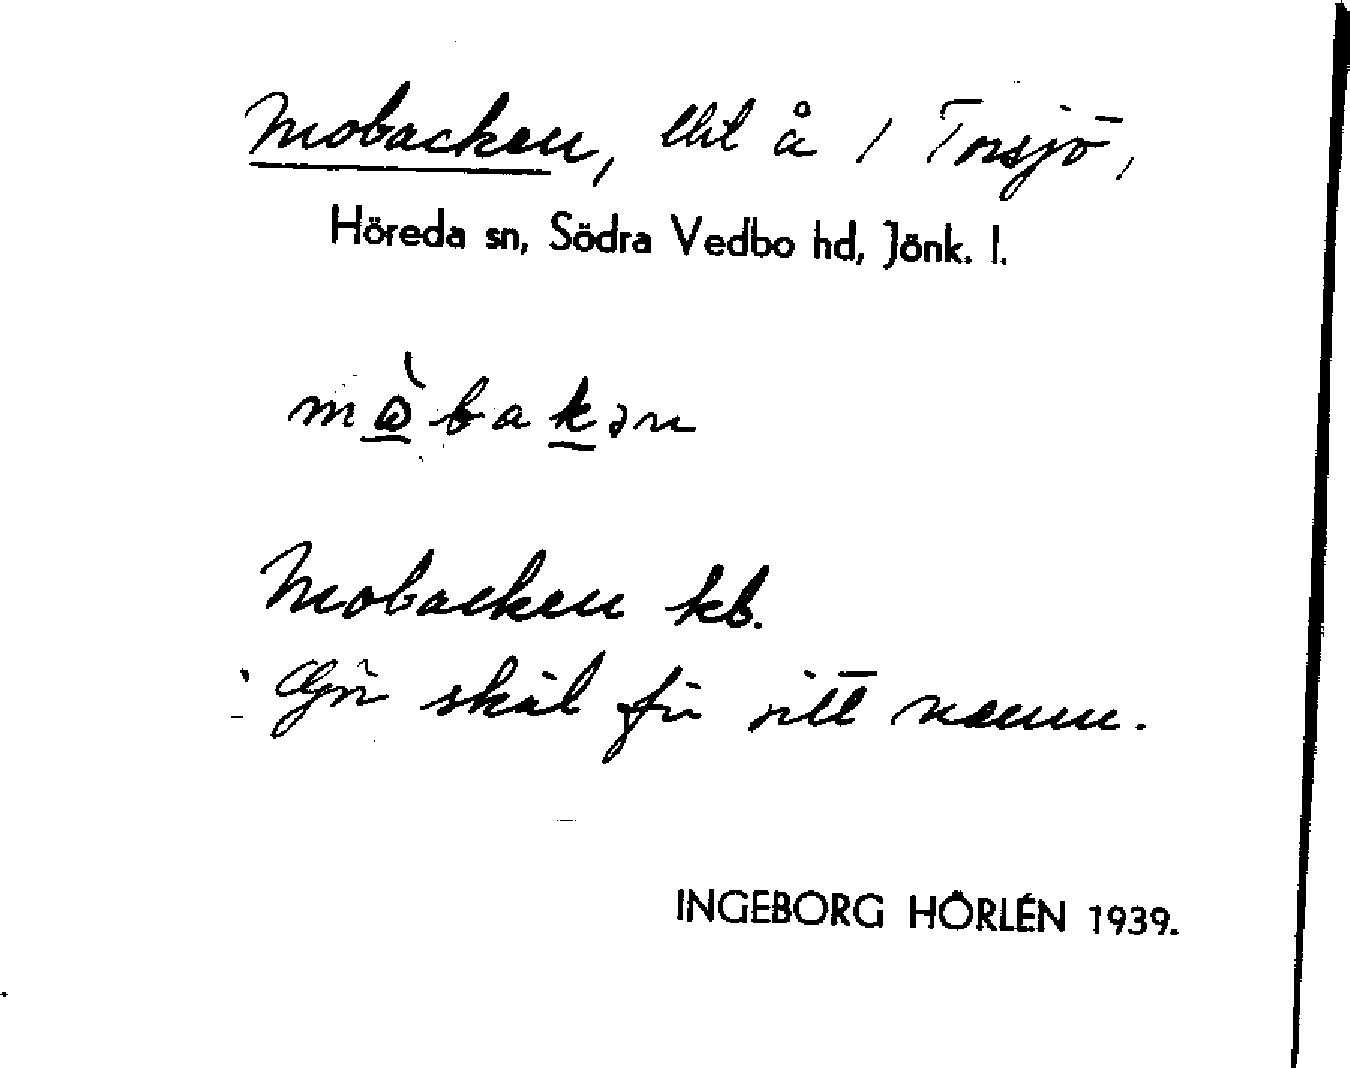 Mobacken, lht å 1 Torsjö,
Höreda sn, Södra Vedbo hd, Jönk. l.
mò̱baḵən
Mobacken kb.
Gör skäl för sitt namn.
INGEBORG HÖRLÉN 1939.